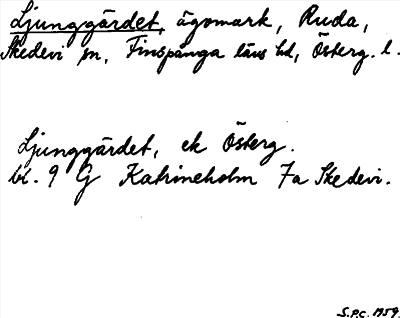 Ljunggärdet, ägomark, Ruda,
Skedevi sn, Finspånga läns hd, Österg. l.
Ljunggärdet, ek Österg.
bl. 9 G Katrineholm 7a Skedevi.
S.P.C. 1959.